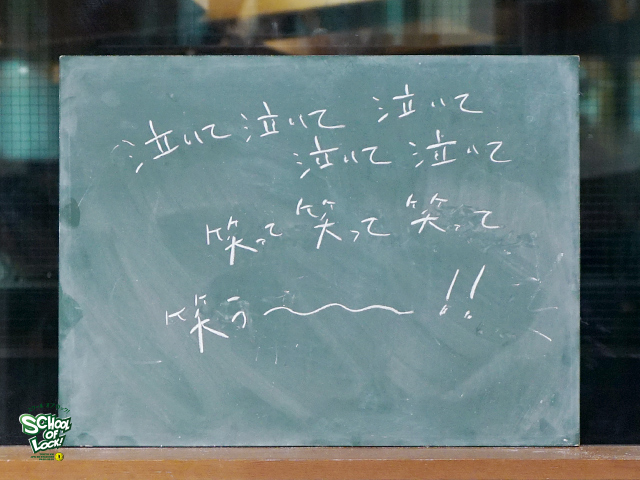 泣いて 泣いて 泣いて
泣いて 泣いて
笑って 笑って 笑って
笑う〜〜〜!!
SCHOOL
OF
LOCK!